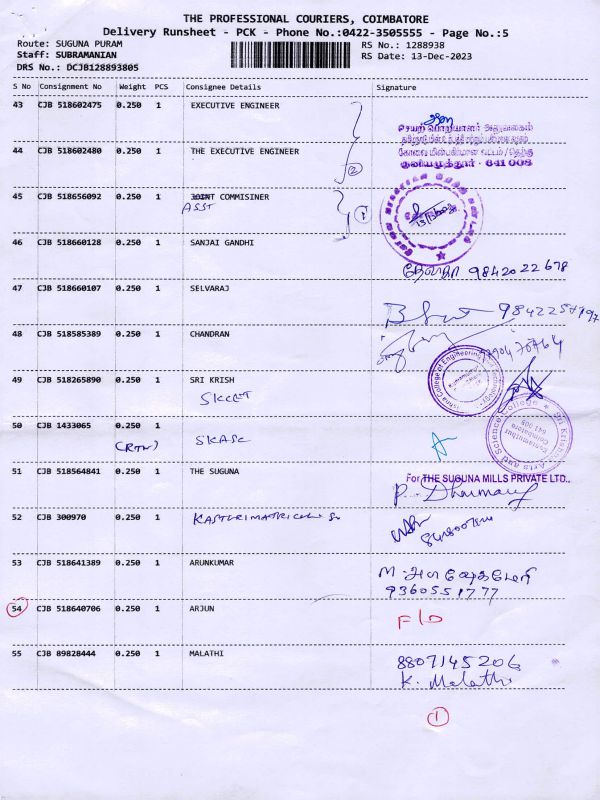 THE PROFESSIONAL COURIERS, COIMBATORE
Delivery Runsheet - PCK - Phone No.:0422-3505555 - Page No.:5
Route: SUGUNA PURAM
RS No.: 1288938
Staff: SUBRAMANIAN
RS Date: 13-Dec-2023
DRS No.: DCJB128893805
S No Consignment No Weight PCS Consignee Details Signature
43 CJB 518602475 0.250 1 EXECUTIVE ENGINEER
செயற் பொறியாளர் அலுவலகம்
44 CJB 518602480 0.250 1 THE EXECUTIVE ENGINEER
②
குனியமுத்தூர் - 641 008
45 CJB 518656092 0.250 1 JOINT COMMISINER
ASST
①
46 CJB 518660128 0.250 1 SANJAI GANDHI
9842022678
47 CJB 518660107 0.250 1 SELVARAJ
48 CJB 518585389 0.250 1 CHANDRAN
49 CJB 518265890 0.250 1 SRI KRISH
SKCET
50 CJB 1433065 0.250 1
(RTN) SKASC
Sri Krishna Arts and Science College
Kuniamuthur
Coimbatore
641 008
51 CJB 518564841 0.250 1 THE SUGUNA
For THE SUGUNA MILLS PRIVATE LTD.,
52 CJB 300970 0.250 1
53 CJB 518641389 0.250 1 ARUNKUMAR
9360551777
54 CJB 518640706 0.250 1 ARJUN
F/D
55 CJB 89828444 0.250 1 MALATHI
8807145206
K. Malathi
①